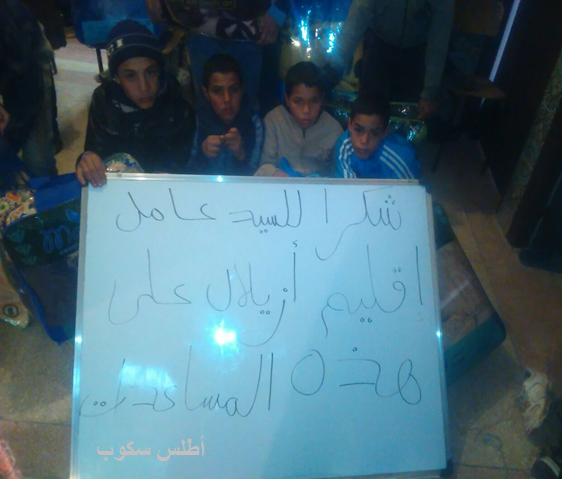 شكرا للسيد عامل
إقليم أزيلال على
هذه المساعدات
أطلس سكوب